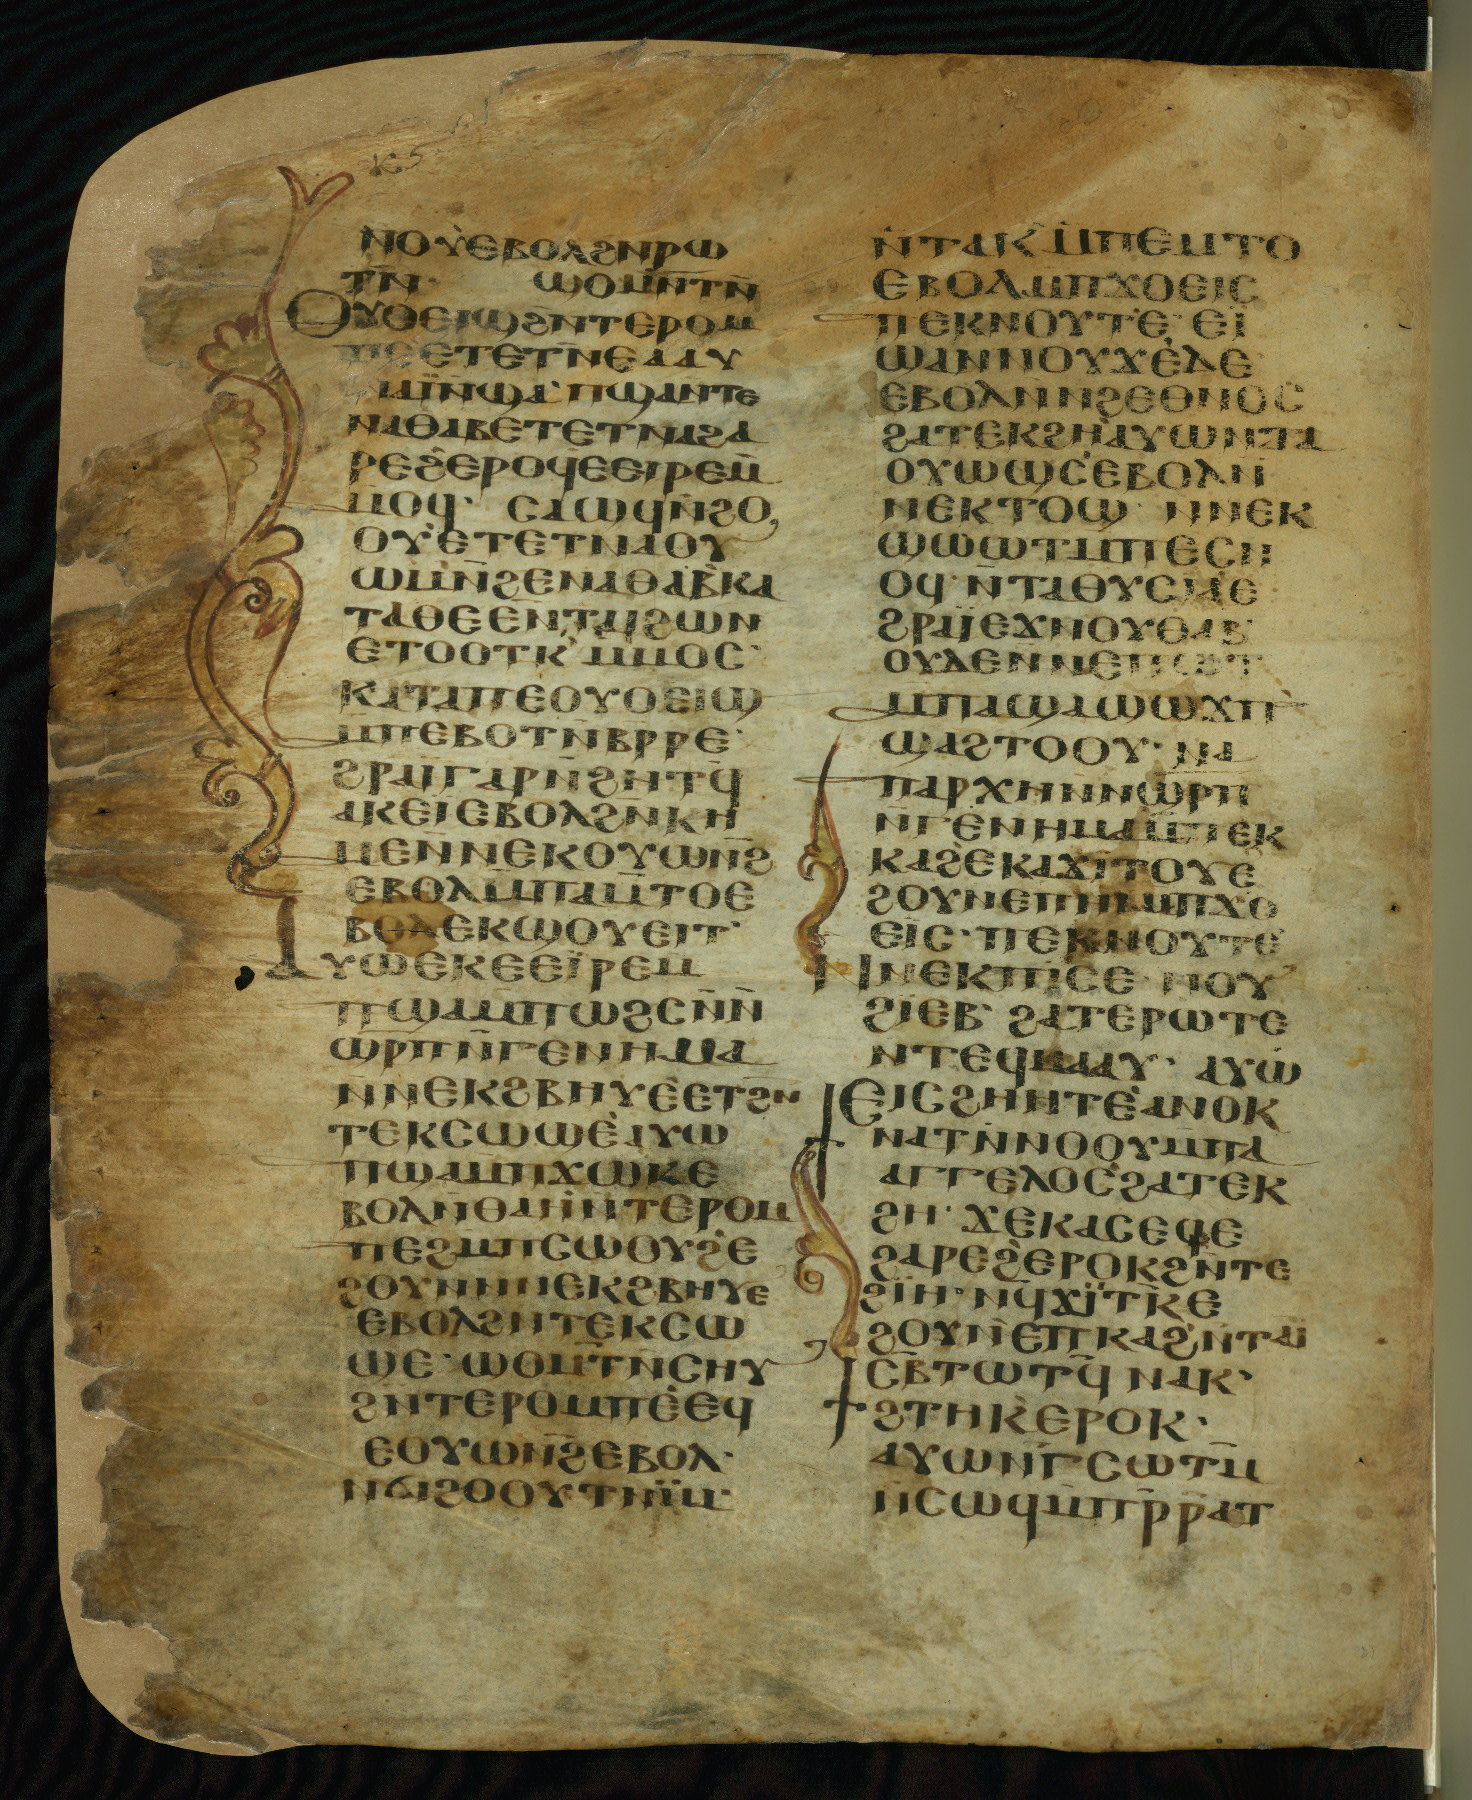 ⲕ̅ⲋ̅
ⲛⲟⲩⲉⲃⲟⲗϩⲛⲣⲱ
ⲧⲛ· ϣⲟⲙⲛ̅ⲧⲛ̅
ⲟⲩⲟⲉⲓϣϩⲛ̅ⲧⲉⲣⲟⲙ
ⲡⲉⲉⲧⲉⲧⲛ̅ⲉⲁⲁⲩ
ⲛⲁⲓ̈ⲛ̅ϣⲁ· ⲡϣⲁⲛⲧⲉ
ⲛⲁⲑⲁⲃⲉⲧⲉⲧⲛⲁϩⲁ
ⲣⲉϩⲉⲣⲟϥⲉⲉⲓⲣⲉⲙ̅
ⲙⲟϥ· ⲥⲁϣϥ̅ⲛ̅ϩⲟ
ⲟⲩⲉⲧⲉⲧⲛⲁⲟⲩ
ⲱⲙ̅ⲛ̅ϩⲉⲛⲁⲑⲁⲃⲕⲁ
ⲧⲁⲑⲉⲉⲛⲧⲁⲓϩⲱⲛ
ⲉⲧⲟⲟⲧⲕ̅ⲙ̅ⲙⲟⲥ·
ⲕⲁⲧⲁⲡⲉⲟⲩⲟⲉⲓϣ
ⲙ̅ⲡⲉⲃⲟⲧⲛ̅ⲃⲣⲣⲉ·
ϩⲣⲁⲓ̈ⲅⲁⲣⲛ̅ϩⲏⲧϥ̅
ⲁⲕⲉⲓⲉⲃⲟⲗϩⲛ̅ⲕⲏ
ⲙⲉⲛⲛⲉⲕⲟⲩⲱⲛϩ̅
ⲉⲃⲟⲗⲙ̅ⲡⲁⲙ̅ⲧⲟⲉ
ⲃⲟⲗⲉⲕϣⲟⲩⲉⲓⲧ·
ⲁⲩⲱⲉⲕⲉⲉⲓⲣⲉⲙ
ⲡϣⲁⲙ̅ⲡⲱϩⲥⲛ̅ⲛ̅
ϣⲣ̅ⲡⲛ̅ⲅⲉⲛⲏⲙⲁ
ⲛ̅ⲛⲉⲕϩⲃⲏⲩⲉⲉⲧϩⲛ
ⲧⲉⲕⲥⲱϣⲉⲁⲩⲱ
ⲡϣⲁⲙ̅ⲡϫⲱⲕⲉ
ⲃⲟⲗⲛ̅ⲑⲁⲏⲛ̅ⲧⲉⲣⲟⲙ
ⲡⲉϩⲙ̅ⲡⲥⲱⲟⲩϩⲉ
ϩⲟⲩⲛⲛⲛⲉⲕϩⲃⲏⲩⲉ
ⲉⲃⲟⲗϩⲛⲧⲉⲕⲥⲱ
ϣⲉ· ϣⲟⲙⲧ̅ⲛ̅ⲥⲏⲩ
ϩⲛⲧⲉⲣⲟⲙⲡⲉⲉϥ
ⲉⲟⲩⲱⲛϩ̅ⲉⲃⲟⲗ·
ⲛϭⲓϩⲟⲟⲩⲧⲛⲓⲙ
ⲛ̅ⲧⲁⲕⲙ̅ⲡⲉⲙⲧⲟ
ⲉⲃⲟⲗⲙ̅ⲡϫⲟⲉⲓⲥ
ⲡⲉⲕⲛⲟⲩⲧⲉ· ⲉⲓ
ϣⲁⲛⲛⲟⲩϫⲉⲇⲉ
ⲉⲃⲟⲗⲛ̅ⲛϩⲉⲑⲛⲟⲥ
ϩⲁⲧⲉⲕϩⲏⲁⲩⲱⲛⲧⲁ
ⲟⲩⲱϣⲥⲉⲃⲟⲗⲛ̅
ⲛⲉⲕⲧⲟϣ· ⲛⲛⲉⲕ
ϣⲱⲱⲧⲙ̅ⲡⲉⲥⲛ
ⲟϥ· ⲛ̅ⲧⲁⲑⲩⲥⲓⲁⲉ
ϩⲣⲁⲓ̈ⲉϫⲛⲟⲩⲑⲁⲃ·
ⲟⲩⲇⲉⲛⲛⲉⲡⲱⲧ
ⲙⲡⲁϣⲁϣⲱϫⲡ̅
ϣⲁϩⲧⲟⲟⲩ· ⲛⲁ
ⲡⲁⲣⲭⲏⲛⲛϣⲣ̅ⲡ
ⲛ̅ⲅⲉⲛⲏⲙⲁⲙ̅ⲡⲉⲕ
ⲕⲁϩⲉⲕⲁϫⲓⲧⲟⲩⲉ
ϩⲟⲩⲛⲉⲡⲏⲓⲙ̅ⲡϫⲟ
ⲉⲓⲥ· ⲡⲉⲕⲛⲟⲩⲧⲉ
ⲛⲛⲉⲕⲡⲓⲥⲉ ⲛⲟⲩ
ϩⲓⲉⲃ· ϩⲁⲧⲉⲣⲱⲧⲉ
ⲛⲧⲉϥⲙⲁⲁⲩ· ⲁⲩⲱ
ⲉⲓⲥϩⲏⲏⲧⲉⲁⲛⲟⲕ
ⲛⲁⲧⲛ̅ⲛⲟⲟⲩⲙ̅ⲡⲁ
ⲁⲅⲅⲉⲗⲟⲥϩⲁⲧⲉⲕ
ϩⲏ· ϫⲉⲕⲁⲥⲉϥⲉ
ϩⲁⲣⲉϩⲉⲣⲟⲕϩⲛ̅ⲧⲉ
ϩⲓⲏ· ⲛϥ̅ϫⲓⲧⲕ̅ⲉ
ϩⲟⲩⲛⲉⲡⲕⲁϩⲛⲧⲁⲓ
ⲥⲃ̅ⲧⲱⲧϥ̅ ⲛⲁⲕ·
ϯϩⲧⲏⲕⲉⲣⲟⲕ·
ⲁⲩⲱⲛⲅ̅ⲥⲱⲧⲙ̅
ⲛ̅ⲥⲱϥⲙ̅ⲡⲣ̅ⲣ̅ⲁⲧ